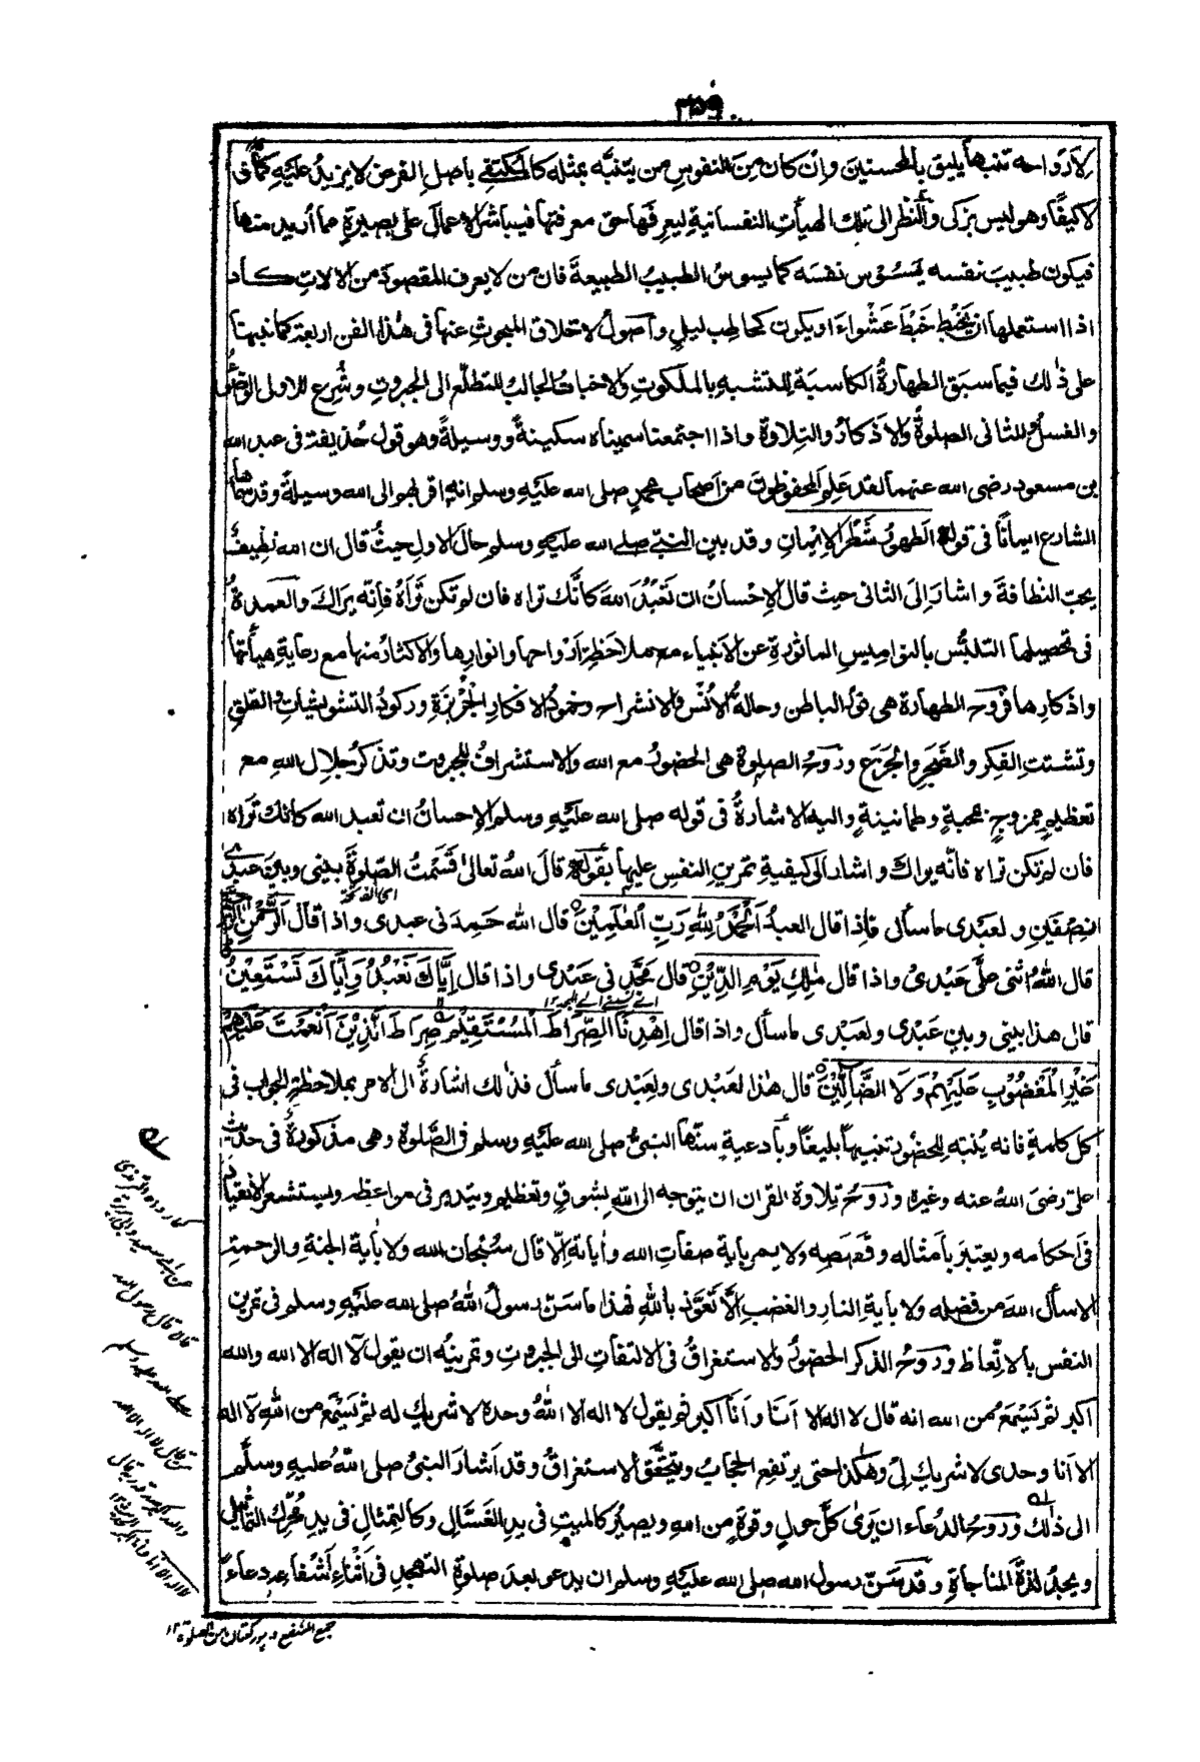 ٣٥٩
لأرواحه تنبها يليق بالمحسنين وإن كان من النفوس من يتنبه بمثله كالمكتفي بأصل الفرض لا يزيد عليه كمًّا ولا
لا كيفًا وهو ليس بزكي والنظر الى تلك الهيأت النفسانية ليعرفها حق معرفتها فيباشر الاعمال على بصيرة مما أريد منها
فيكون طبيب نفسه يسوس نفسه كما يسوس الطبيب الطبيعة فان من لا يعرف المقصود من الالات كاد
اذا استعملها ان يخبط خبط عشواء او يكون كحاطب ليل وأصول الاخلاق المبحوث عنها فى هذا الفن اربعة كما نبهنا
على ذلك فيما سبق الطهارة الكاسبة للتشبه بالملكوت والاخبات الجالب للتطلع الى الجبروت وشرع للاولى الوضوء
والغسل وللثانى الصلوة والاذكار والتلاوة واذا اجتمعتا سميناه سكينة ووسيلة وهو قول حذيفة فى عبد الله
بن مسعود رضى الله عنهما لقد علم المحفوظون من أصحاب محمد صلى الله عليه وسلم انه اقربهم الى الله وسيلة وقد سماها
الشارع ايمانًا فى قوله الطهور شطر الإيمان وقد بين النبي صلى الله عليه وسلم حال الاول حيث قال ان الله نظيف
يحب النظافة واشار إلى الثانى حيث قال الإحسان ان تعبد الله كأنك تراه فان لم تكن تراه فإنه يراك والعمدة
فى تحصيلها التلبس بالنواميس الماثورة عن الانبياء مع ملاحظة أرواحها وانوارها والاكثار منها مع رعاية هيأتها
واذكارها فروح الطهارة هى نور الباطن وحالة الأنس والانشراح وخمود الافكار الجربزة وركود التشويشات والقلق
وتشتت الفكر والضجر والجزع وروح الصلوة هى الحضور مع الله والاستشراف للجبروت وتذكر جلال الله مع
تعظيم ممزوج بمحبة وطمانينة واليه الاشارة فى قوله صلى الله عليه وسلم الإحسان ان تعبد الله كانك تراه
فان لم تكن تراه فانه يراك واشار الى كيفية تمرين النفس عليها بقوله قال الله تعالى قسمت الصلوة بينى وبين عبدى
نصفين ولعبدى ما سألى فإذا قال العبد الحمد لله رب العلمين قال الله حمدنى عبدى واذا قال الرحمن الرحيم
قال الله اثنى على عبدى واذا قال ملك يوم الدين قال مجدنى عبدى واذا قال إياك نعبد وإياك نستعين
قال هذا بينى وبين عبدى ولعبدى ما سأل واذا قال اهدنا الصراط المستقيم صراط الذين أنعمت عليهم
غير المغضوب عليهم ولا الضالين قال هذا لعبدى ولعبدى ما سأل فذلك اشارة الى الامر بملاحظة الجواب فى
كل كلمة فانه ينبه للحضور تنبيها بليغًا وبأدعية سنها النبى صلى الله عليه وسلم فى الصلوة وهى مذكورة فى حديث
على رضى الله عنه وغيره وروح تلاوة القران ان يتوجه الى الله بشوق وتعظيم ويتدبر فى مواعظه ويستشعر الانقياد
فى أحكامه ويعتبر بأمثاله وقصصه ولا يمر بآية صفات الله وآياته إلا قال سبحان الله ولا بآية الجنة والرحمة
الا سأل الله من فضله ولا بآية النار والغضب إلا تعوذ بالله فهذا ما سن رسول الله صلى الله عليه وسلم فى تمرين
النفس بالاتعاظ وروح الذكر الحضور والاستغراق فى الالتفات الى الجبروت وتمرينه ان يقول لآ اله الا الله والله
اكبر ثم يسمع من الله انه قال لا اله الا انا وأنا أكبر ثم يقول لا اله الا الله وحده لا شريك له ثم يسمع من الله لآ اله
الا أنا وحدى لا شريك لى وهكذا حتى يرتفع الحجاب ويتحقق الاستغراق وقد أشار النبى صلى الله عليه وسلم
الى ذلك وروح الدعاء ان يرى كل حول وقوة من الله ويصير كالميت فى يد الغسال وكالتمثال فى يد محرك التماثيل
ويجد لذة المناجاة وقد سن رسول الله صلى الله عليه وسلم ان يدعو بعد صلوة التهجد فى أثناء أشفاعه دعاء
كما رواه الترمذى
عن ابى سعيد وابى هريرة
قالا قال رسول الله
صلى الله عليه وسلم
من قال لا اله الا الله
والله اكبر صدقه ربه قال
لا اله الا انا وانا اكبر